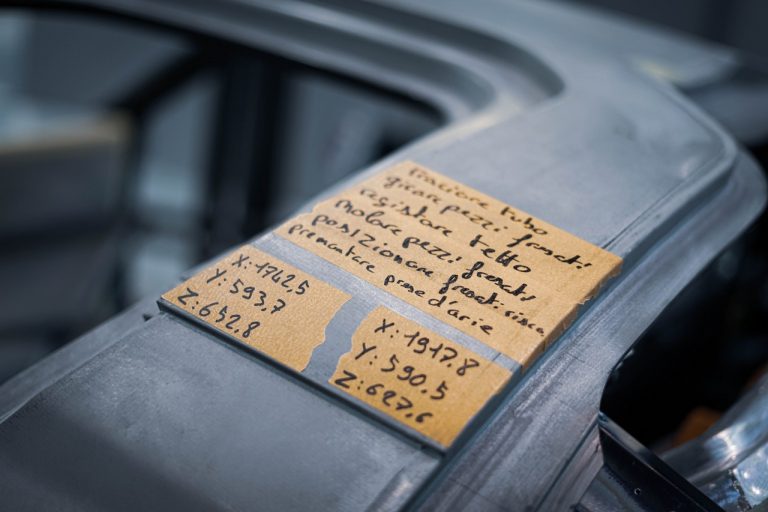 tracciare tubo
girare pezzi fresati
registrare tetto
molare pezzi fresati
posizionare fresati
premontare prese d'aria
X:1742,5
Y:593,7
Z:652,8
X:1917.8
Y:590.5
Z:627,6